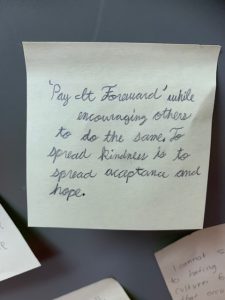 'Pay It Foreward' while
encouraging others
to do the same. To
spread kindness is to
spread acceptance and
hope.
I cannot
to hating
cultures